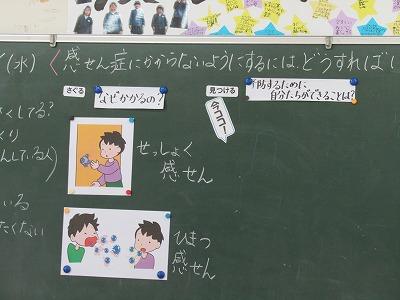 (水)
感せん症にかからないようにするには、どうすればい
さぐる
なぜかかるの?
見つける
予防するために
自分たちができることは?
今ココ!
せっしょく
感せん
ひまつ
感せん
くしてる?
くり
んしている人)
いる
たくない